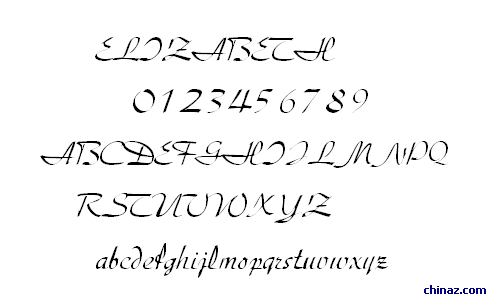 ELIZABETH
0 1 2 3 4 5 6 7 8 9
ABCDEFGHIJLMNPQ
RSTUVWXYZ
abcdefghijlmopqrstuvwxyz
chinaz.com